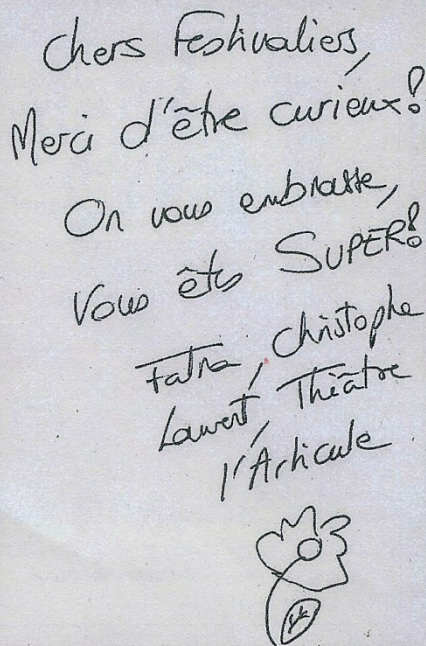 Chers Festivaliers,
Merci d'être curieux!
On vous embrasse,
Vous êtes SUPER!
Fatna, Christophe
Laurent, Théâtre
l'Articule